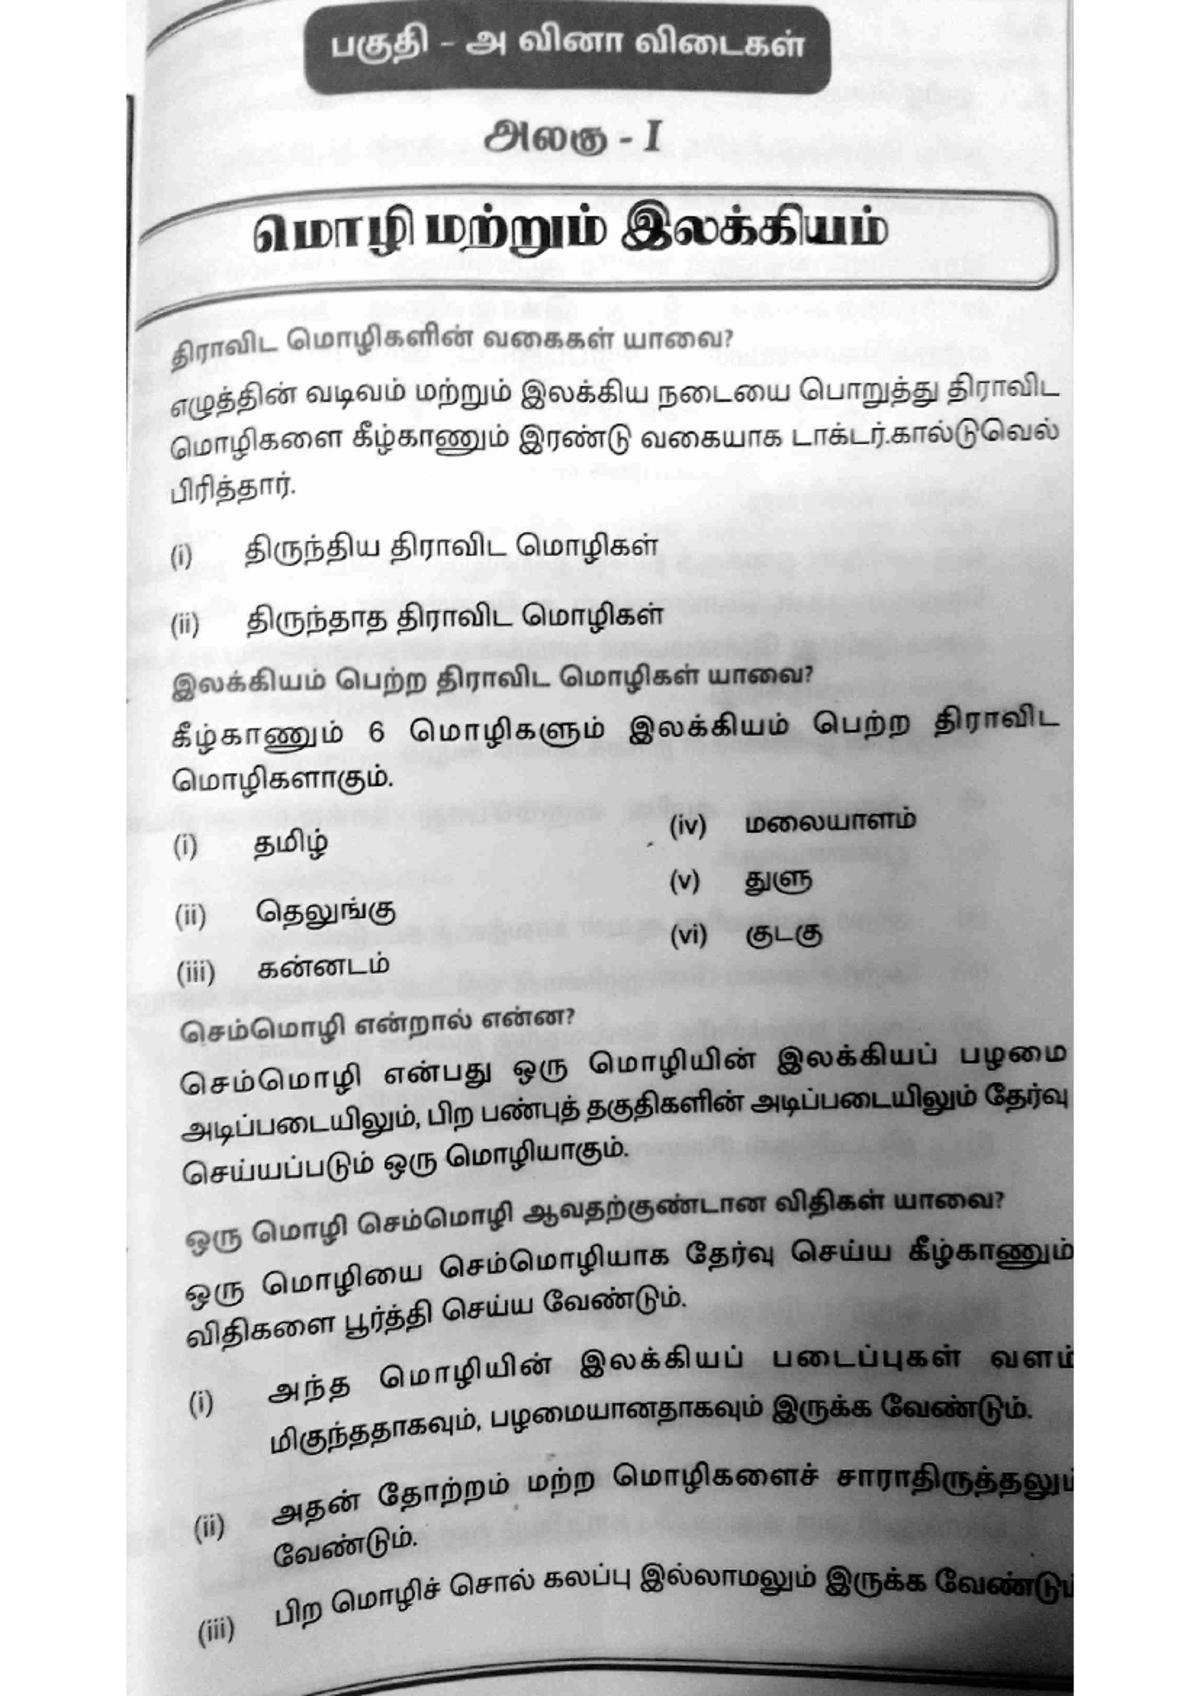 பகுதி - அ வினா விடைகள்
அலகு - I
மொழி மற்றும் இலக்கியம்
திராவிட மொழிகளின் வகைகள் யாவை?
எழுத்தின் வடிவம் மற்றும் இலக்கிய நடையை பொறுத்து திராவிட
மொழிகளை கீழ்காணும் இரண்டு வகையாக டாக்டர்.கால்டுவெல்
பிரித்தார்.
(i) திருந்திய திராவிட மொழிகள்
(ii) திருந்தாத திராவிட மொழிகள்
இலக்கியம் பெற்ற திராவிட மொழிகள் யாவை?
கீழ்காணும் 6 மொழிகளும் இலக்கியம் பெற்ற திராவிட
மொழிகளாகும்.
(i) தமிழ்
(ii) தெலுங்கு
(iii) கன்னடம்
(iv) மலையாளம்
(v) துளு
(vi) குடகு
செம்மொழி என்றால் என்ன?
செம்மொழி என்பது ஒரு மொழியின் இலக்கியப் பழமை
அடிப்படையிலும், பிற பண்புத் தகுதிகளின் அடிப்படையிலும் தேர்வு
செய்யப்படும் ஒரு மொழியாகும்.
ஒரு மொழி செம்மொழி ஆவதற்குண்டான விதிகள் யாவை?
ஒரு மொழியை செம்மொழியாக தேர்வு செய்ய கீழ்காணும்
விதிகளை பூர்த்தி செய்ய வேண்டும்.
(i) அந்த மொழியின் இலக்கியப் படைப்புகள் வளம்
மிகுந்ததாகவும், பழமையானதாகவும் இருக்க வேண்டும்.
(ii) அதன் தோற்றம் மற்ற மொழிகளைச் சாராதிருத்தலும்
வேண்டும்.
(iii) பிற மொழிச் சொல் கலப்பு இல்லாமலும் இருக்க வேண்டும்